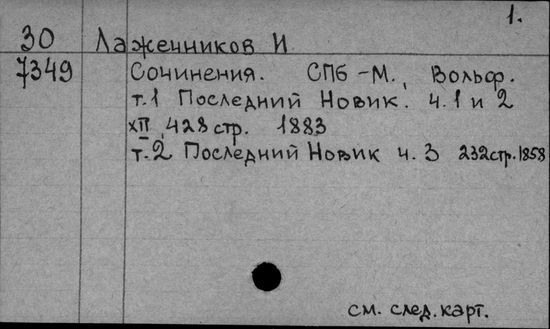 1.
30 Лаженников И
7349 Сочинения. СПб-М., Вольф.
т.1 Последний Новик. ч.1 и 2
XII, 428 стр. 1883
т.2 Последний Новик ч. 3 232стр. 1858
см. след. карт.